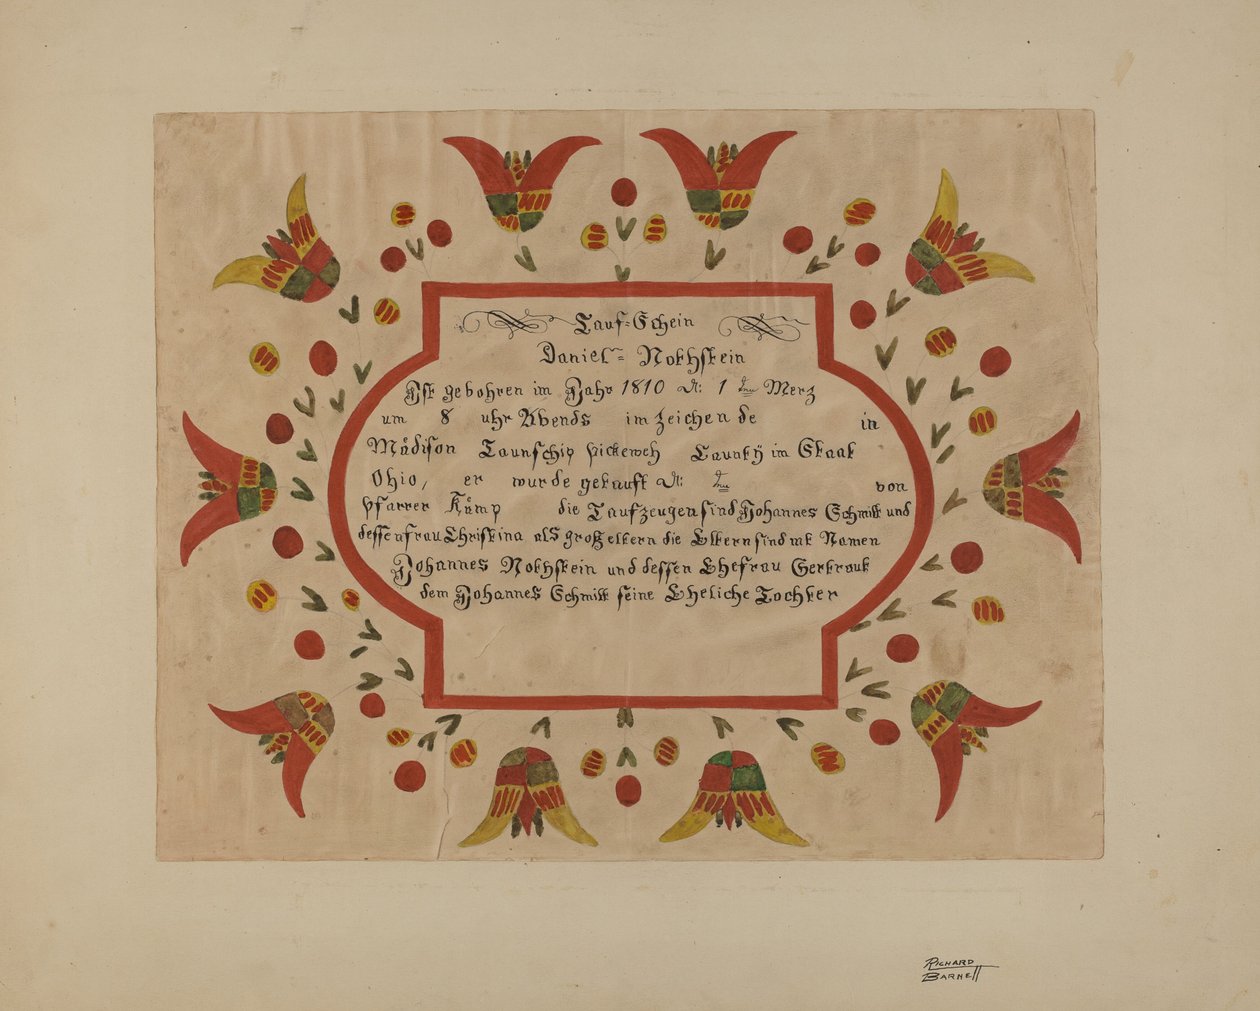 Tauf=Schein
Daniel= Nothstein
Ist gebohren im Jahr 1810 d: 1 ten Merz
um 8 uhr Abends im zeichen de in
Mädison Taunschip pickeweh Caunty im Staat
Ohio, er wurde getauft d: ten von
Pfarrer Kämp die Taufzeugen sind Johannes Schmitt und
dessen frau Christina als großeltern die Eltern sind mt Namen
Johannes Nothstein und dessen Ehefrau Gertraut
dem Johannes Schmitt seine Eheliche Tochter
RICHARD
BARNETT